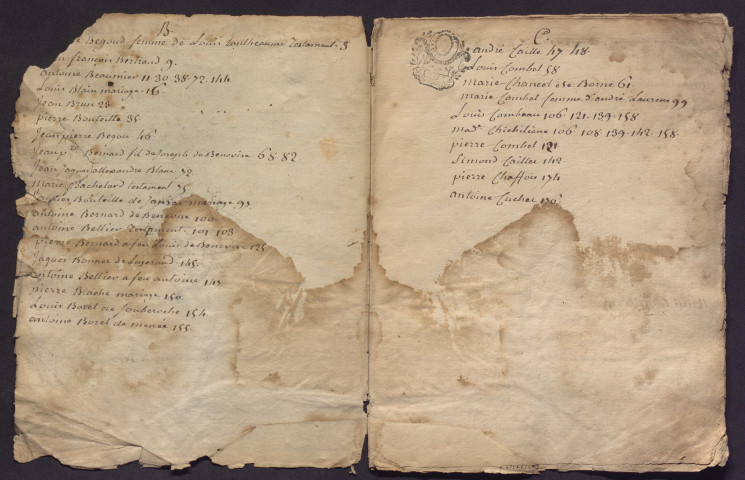 B.
Begoud femme de Louis testament 3
françois Bertrand 9.
antoine Beaumier 11. 30. 38. 72. 144
Louis Blain mariage 16
Jean Brun 23
pierre Bouteille 35
Jean pierre Begou 46
Bernard fil de Joseph de Benevise 68. 82
Jean Jaques allexandre Blanc
marie Bachelard testament 75
Bouteille de mariage 93
antoine Bernard de Benevise
antoine Bellier testament 101. 103
pierre Bernard a feu Louis de Benevise 125
Jaques Bonnet de 145
antoine Bellier a feu antoine
pierre Bache mariage 150
Louis Borel de 154
antoine Borel de menée 155
C.
andré Caille 47. 48.
Louis Combel 58
marie Chancel de Borne 61
marie Combel femme d'andré Laurens 99
Louis Combeau 106. 121. 139. 158
mad. 106. 108. 139. 142. 158
pierre Combel 121
Simond Caille 142
pierre Chaffois 174
antoine